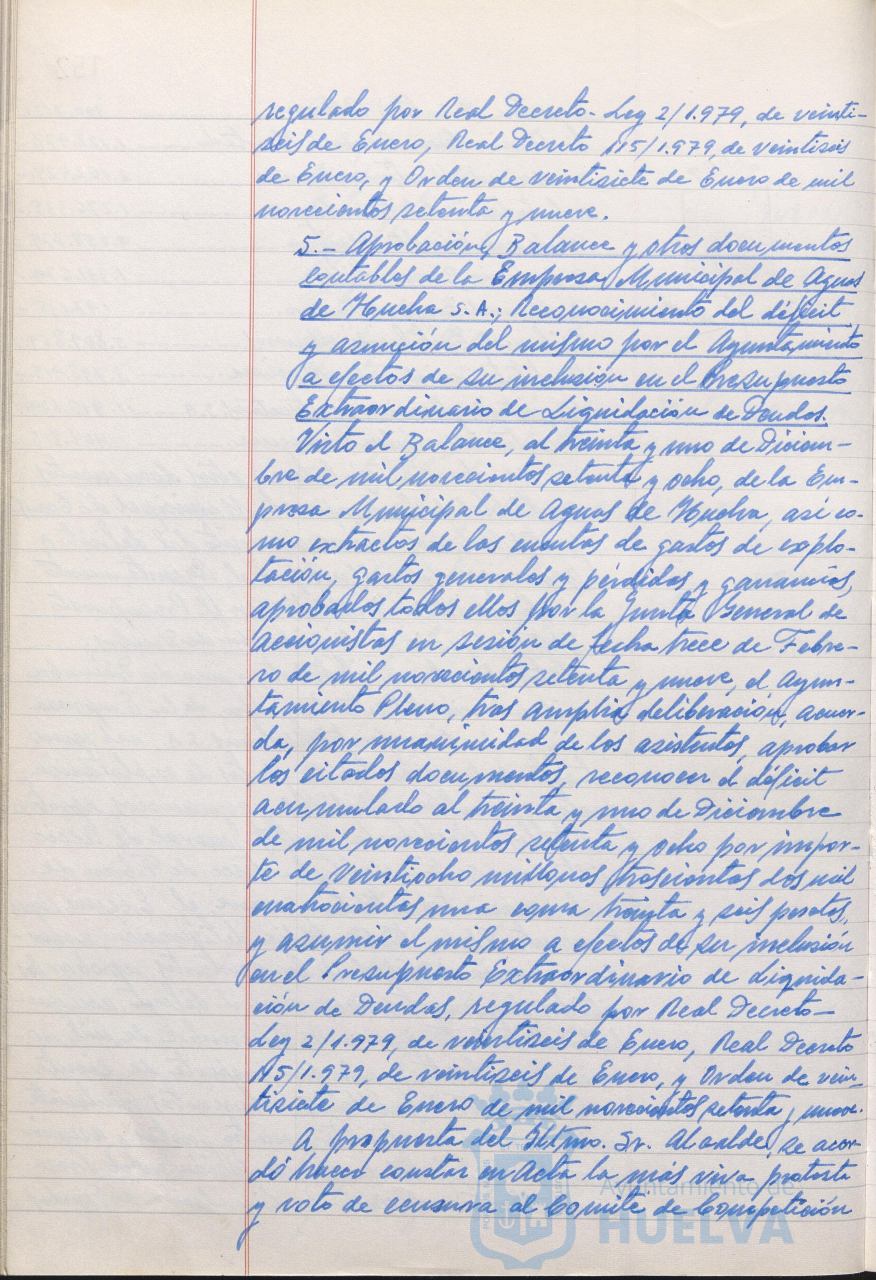 regulado por Real Decreto-Ley 2/1.979, de veinti-
seis de Enero, Real Decreto 115/1.979, de veintiseis
de Enero, y Orden de veintisiete de Enero de mil
novecientos setenta y nueve.
5.- Aprobación, Balance y otros documentos
contables de la Empresa Municipal de Aguas
de Huelva S.A.; Reconocimiento del déficit
y asunción del mismo por el Ayuntamiento
a efectos de su inclusión en el Presupuesto
Extraordinario de Liquidación de Deudas.
Visto el Balance, al treinta y uno de Diciem-
bre de mil novecientos setenta y ocho, de la Em-
presa Municipal de Aguas de Huelva, así co-
mo extractos de las cuentas de gastos de explo-
tación, gastos generales y pérdidas y ganancias,
aprobados todos ellos por la Junta General de
Accionistas en sesión de fecha trece de Febre-
ro de mil novecientos setenta y nueve, el Ayun-
tamiento Pleno, tras amplia deliberación, acuer-
da, por unanimidad de los asistentes, aprobar
los citados documentos, reconocer el déficit
acumulado al treinta y uno de Diciembre
de mil novecientos setenta y ocho por impor-
te de Veintiocho millones trescientas dos mil
cuatrocientas una coma treinta y seis pesetas,
y asumir el mismo a efectos de su inclusión
en el Presupuesto Extraordinario de Liquida-
ción de Deudas, regulado por Real Decreto-
Ley 2/1.979, de veintiseis de Enero, Real Decreto
115/1.979, de veintiseis de Enero, y Orden de vein-
tisiete de Enero de mil novecientos setenta y nueve.
A propuesta del Iltmo. Sr. Alcalde, se acor-
dó hacer constar en Acta la más viva protesta
y voto de censura al Comité de Competición
Ayuntamiento de
HUELVA